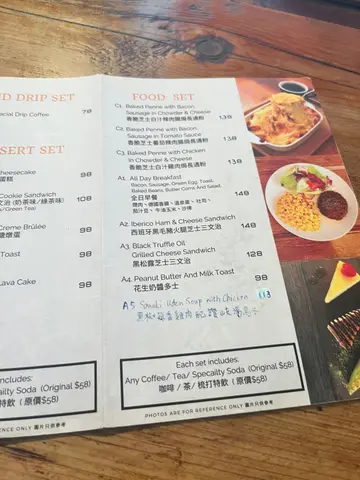 D DRIP SET
ecial Drip Coffee 78
SERT SET
Cheesecake 98
Cookie Sandwich 108
Crème Brûlée 98
Toast 98
Lava Cake 98
includes:
ialty Soda (Original $58)
特飲 ( 原價$58)
ENCE ONLY 圖片只供參考
FOOD SET
C1. Baked Penne with Bacon,
Sausage in Chowder & Cheese 138
C2. Baked Penne with Bacon,
Sausage in Tomato Sauce 138
C3. Baked Penne with Chicken
in Chowder & Cheese 138
A1. All Day Breakfast
Bacon, Sausage, Green Egg, Toast,
Baked Beans, Butter Corns And Salad. 148
全日早餐
A2. Iberico Ham & Cheese Sandwich 148
西班牙黑毛豬火腿芝士三文治
A3. Black Truffle Oil
Grilled Cheese Sandwich 128
黑松露芝士三文治
A4. Peanut Butter And Milk Toast 98
花生奶醬多士
A5 Udon Soup with Chicken 113
Each set includes:
Any Coffee/ Tea/ Specailty Soda (Original $58)
咖啡 / 茶/ 梳打特飲 ( 原價$58)
PHOTOS ARE FOR REFERENCE ONLY 圖片只供參考